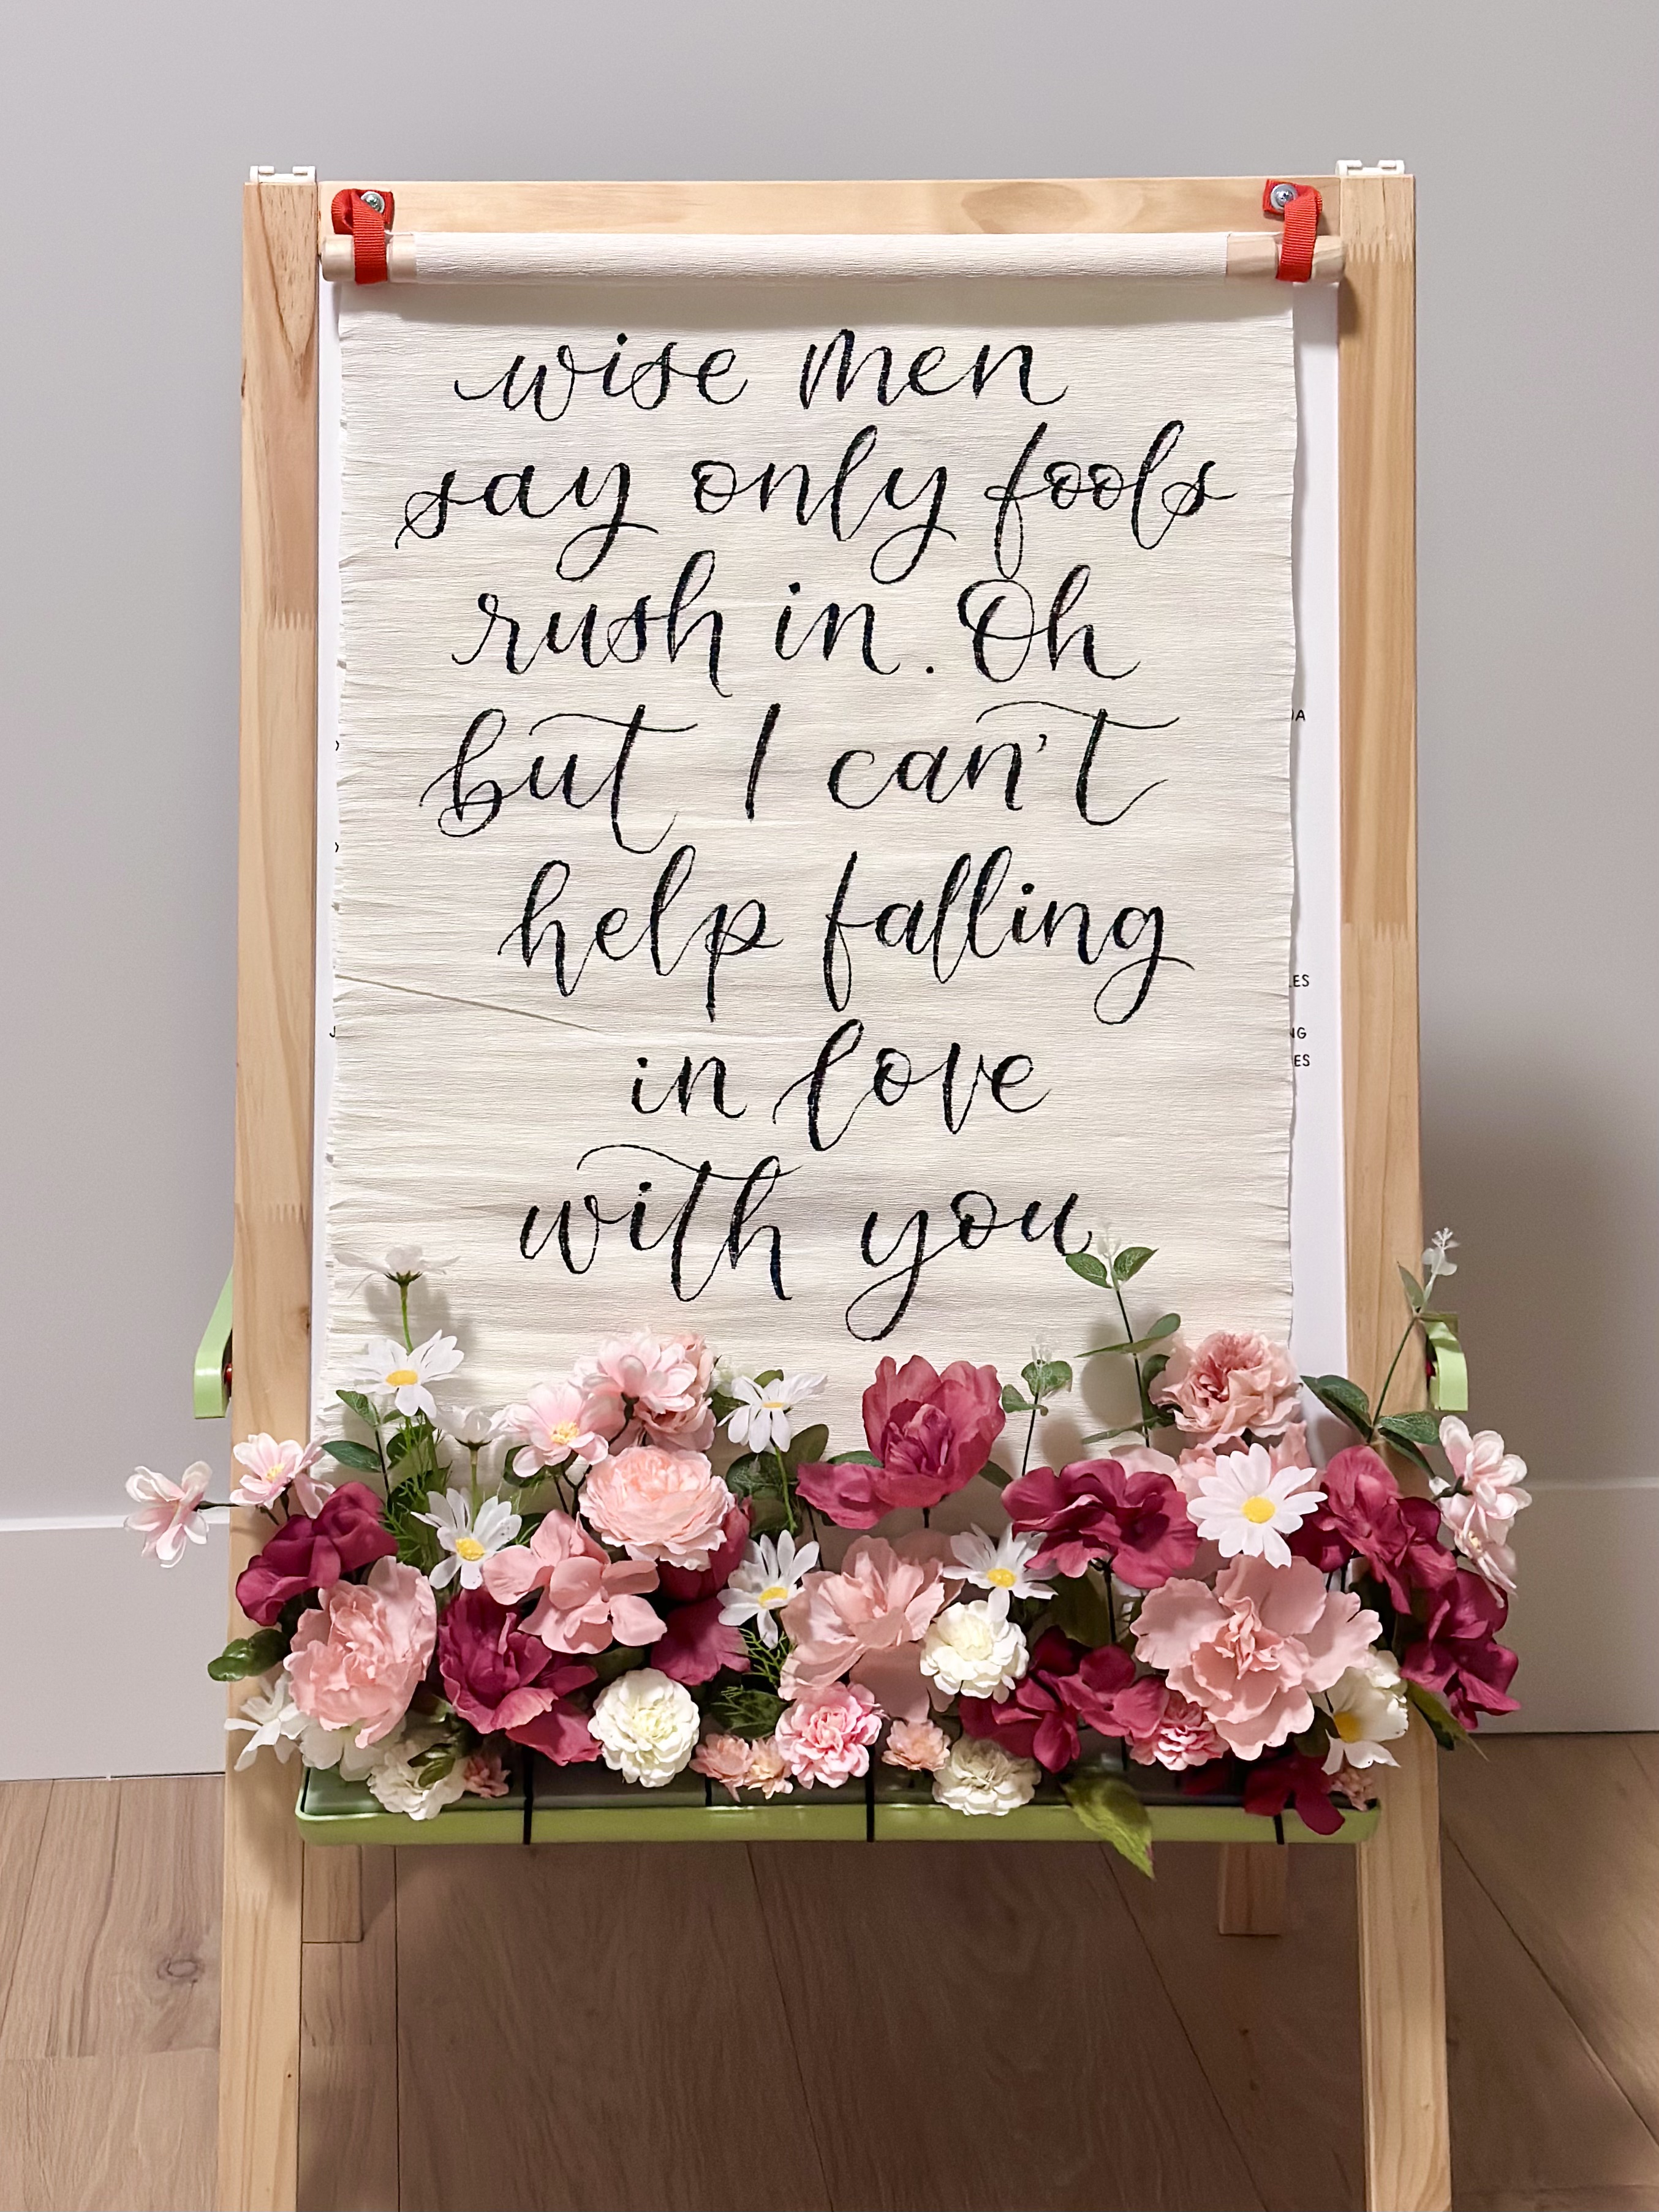 wise men
say only fools
rush in. Oh
but I can't
help falling
in love
with you